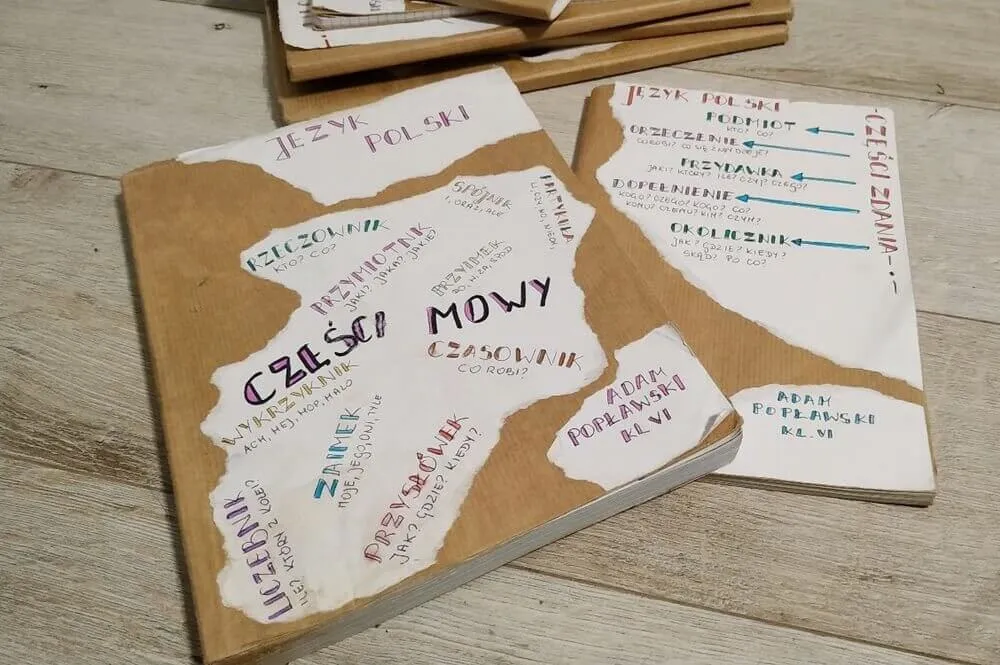 JĘZYK POLSKI
SPÓJNIK
I, ORAZ, ALE
PARTYKUŁA
RZECZOWNIK
KTO? CO?
PRZYMIOTNIK
JAKI? JAKA? JAKIE?
PRZYIMEK
DO, W, ZA, SPOD
CZĘŚCI MOWY
CZASOWNIK
CO ROBI?
WYKRZYKNIK
ACH, HEJ, HOP, HALO
ZAIMEK
MOJE, JEGO, OWI, TYLE
PRZYSŁÓWEK
JAK? GDZIE? KIEDY?
LICZEBNIK
ILE? KTÓRY Z KOLEI?
ADAM
POPŁAWSKI
KL.VI
JĘZYK POLSKI
PODMIOT
KTO? CO?
ORZECZENIE
CO ROBI? CO SIĘ Z NIM DZIEJE?
PRZYDAWKA
JAKI? KTÓRY? ILE? CZYJ? CZEGO?
DOPEŁNIENIE
KOGO? CZEGO? KOGO? CO?
KOMU? CZEMU? KIM? CZYM?
OKOLICZNIK
JAK? GDZIE? KIEDY?
SKĄD? PO CO?
-CZĘŚCI ZDANIA-
ADAM
POPŁAWSKI
KL.VI